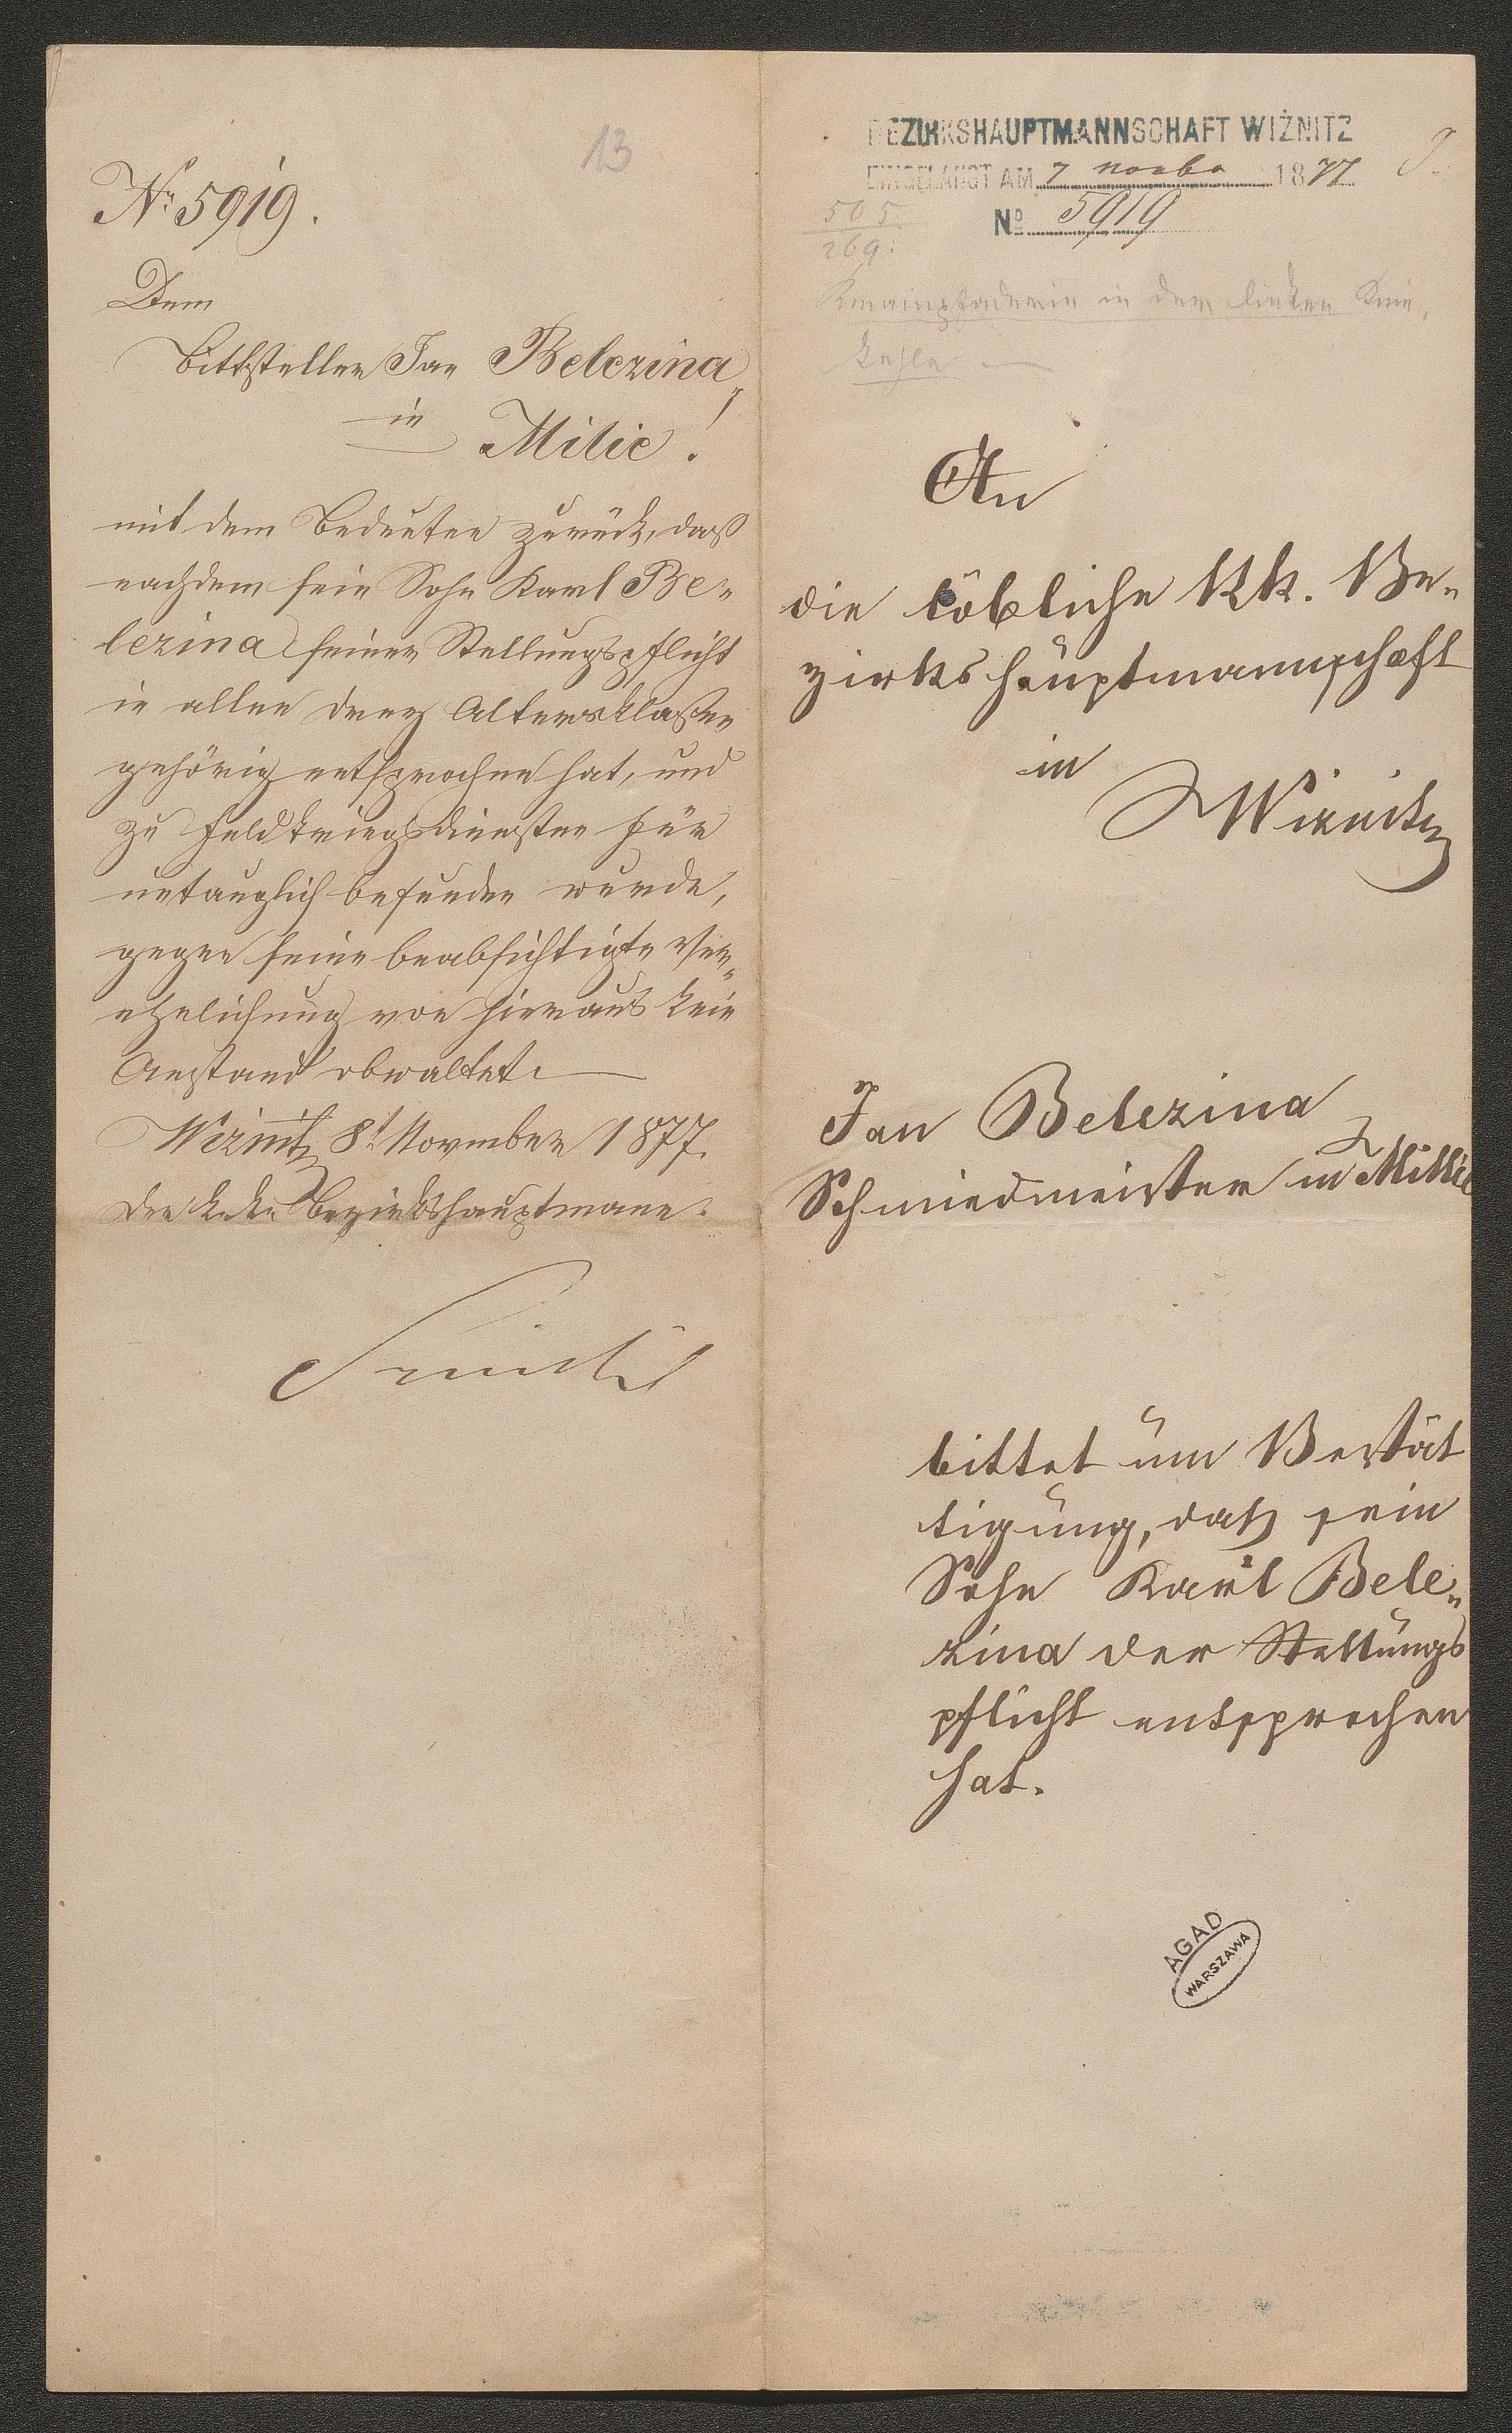 13
Nr. 5919.
Dem
Bittsteller Jan Belezina
in Milie!
mit dem Bedeuten zurück, daß
nachdem sein Sohn Karl Be-
lezina seiner Stellungspflicht
in allen drey Altersklaßen
gehörig entsprochen hat, und
zu Feldkriegsdiensten für
untauglich befunden wurde,
gegen seine beabsichtigte Ver-
ehelichung von hieraus kein
Anstand obwaltet.
Wiznitz 8t November 1877.
Der k. k. Bezirkshauptmann.
BEZIRKSHAUPTMANNSCHAFT WIŻNITZ
EINGELANGT AM 7 1877
No 5919
505
269.
Krampfadern in der linken Knie-
kehle
An
die löbliche kk. Be-
zirkshauptmannschaft
in
Wiznitz
Jan Belezina
Schmiedmeister in Millie
bittet um Bestät
tigung, daß sein
Sohn Karl Bele-
zina der Stellungs
pflicht entsprochen
hat.
AGAD
WARSZAWA